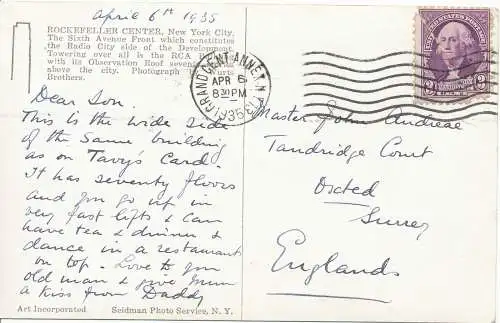 April 6th 1935
ROCKEFELLER CENTER, New York City.
The Sixth Avenue Front which constitutes
the Radio City side of the Development.
Towering over all is the RCA
with its Observation Roof
above the city. Photograph Wurts
Brothers.
GRAND CENT. ANNEX N.Y.
APR 6
8 30 PM
1935
Dear Son.
This is the wide side
of the same building
as on Tavy's Card.
It has seventy floors
and you go up in
very fast lifts & can
have tea & dinner &
dance in a restaurant
on top. Love to you
old man & give Mum
a kiss from Daddy
Master John Andreae
Tandridge Court
Oxted
Surrey
Englands
Art Incorporated Seidman Photo Service, N. Y.